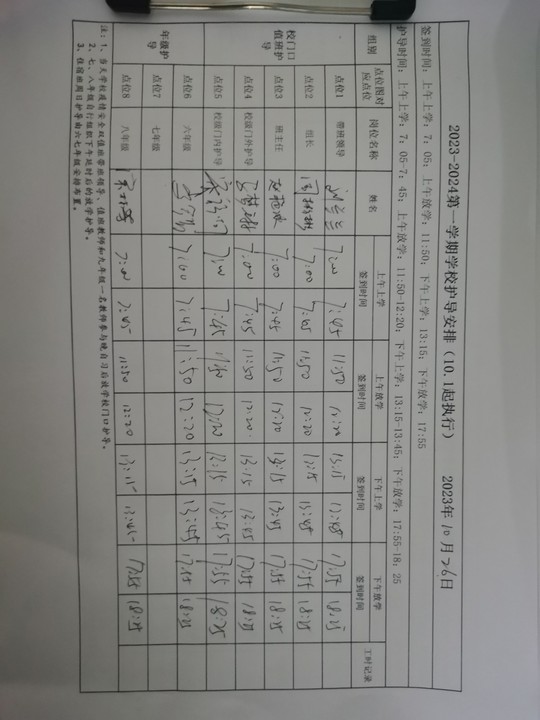 2023-2024第一学期学校护导安排（10.1起执行） 2023年10月26日
签到时间：上午上学：7：05；上午放学：11:50；下午上学：13:15；下午放学：17:55
护导时间：上午上学：7：05-7：45；上午放学：11:50-12:20；下午上学：13:15-13:45；下午放学：17:55-18：25
组别 点位图对应点位 岗位名称 姓名 上午上学签到时间 上午放学签到时间 下午上学签到时间 下午放学签到时间 工时记录
校门口值班护导 点位1 带班领导 7:00 7:45 11:50 12:20 13:15 13:45 17:55 18:25
点位2 组长 7:00 7:45 11:50 12:20 13:15 13:45 17:55 18:25
点位3 班主任 7:00 7:45 11:50 12:20 13:15 13:45 17:55 18:25
点位4 校级门外护导 7:00 7:45 11:50 12:20 13:15 13:45 17:55 18:25
点位5 校级门内护导 7:00 7:45 11:50 12:20 13:15 13:45 17:55 18:25
年级护导 点位6 六年级 7:00 7:45 11:50 12:20 13:15 13:45 17:55 18:25
点位7 七年级
点位8 八年级 7:00 7:45 11:50 12:20 13:15 13:45 17:55 18:25
注：1、当天学校疫情安全双值班带班领导、值班教师和九年级一名教师参与晚自习后放学校门口护导。
2、七、八年级自行组织下午延时后的放学护导。
3、住宿班周日护导由六七年级安排布置。